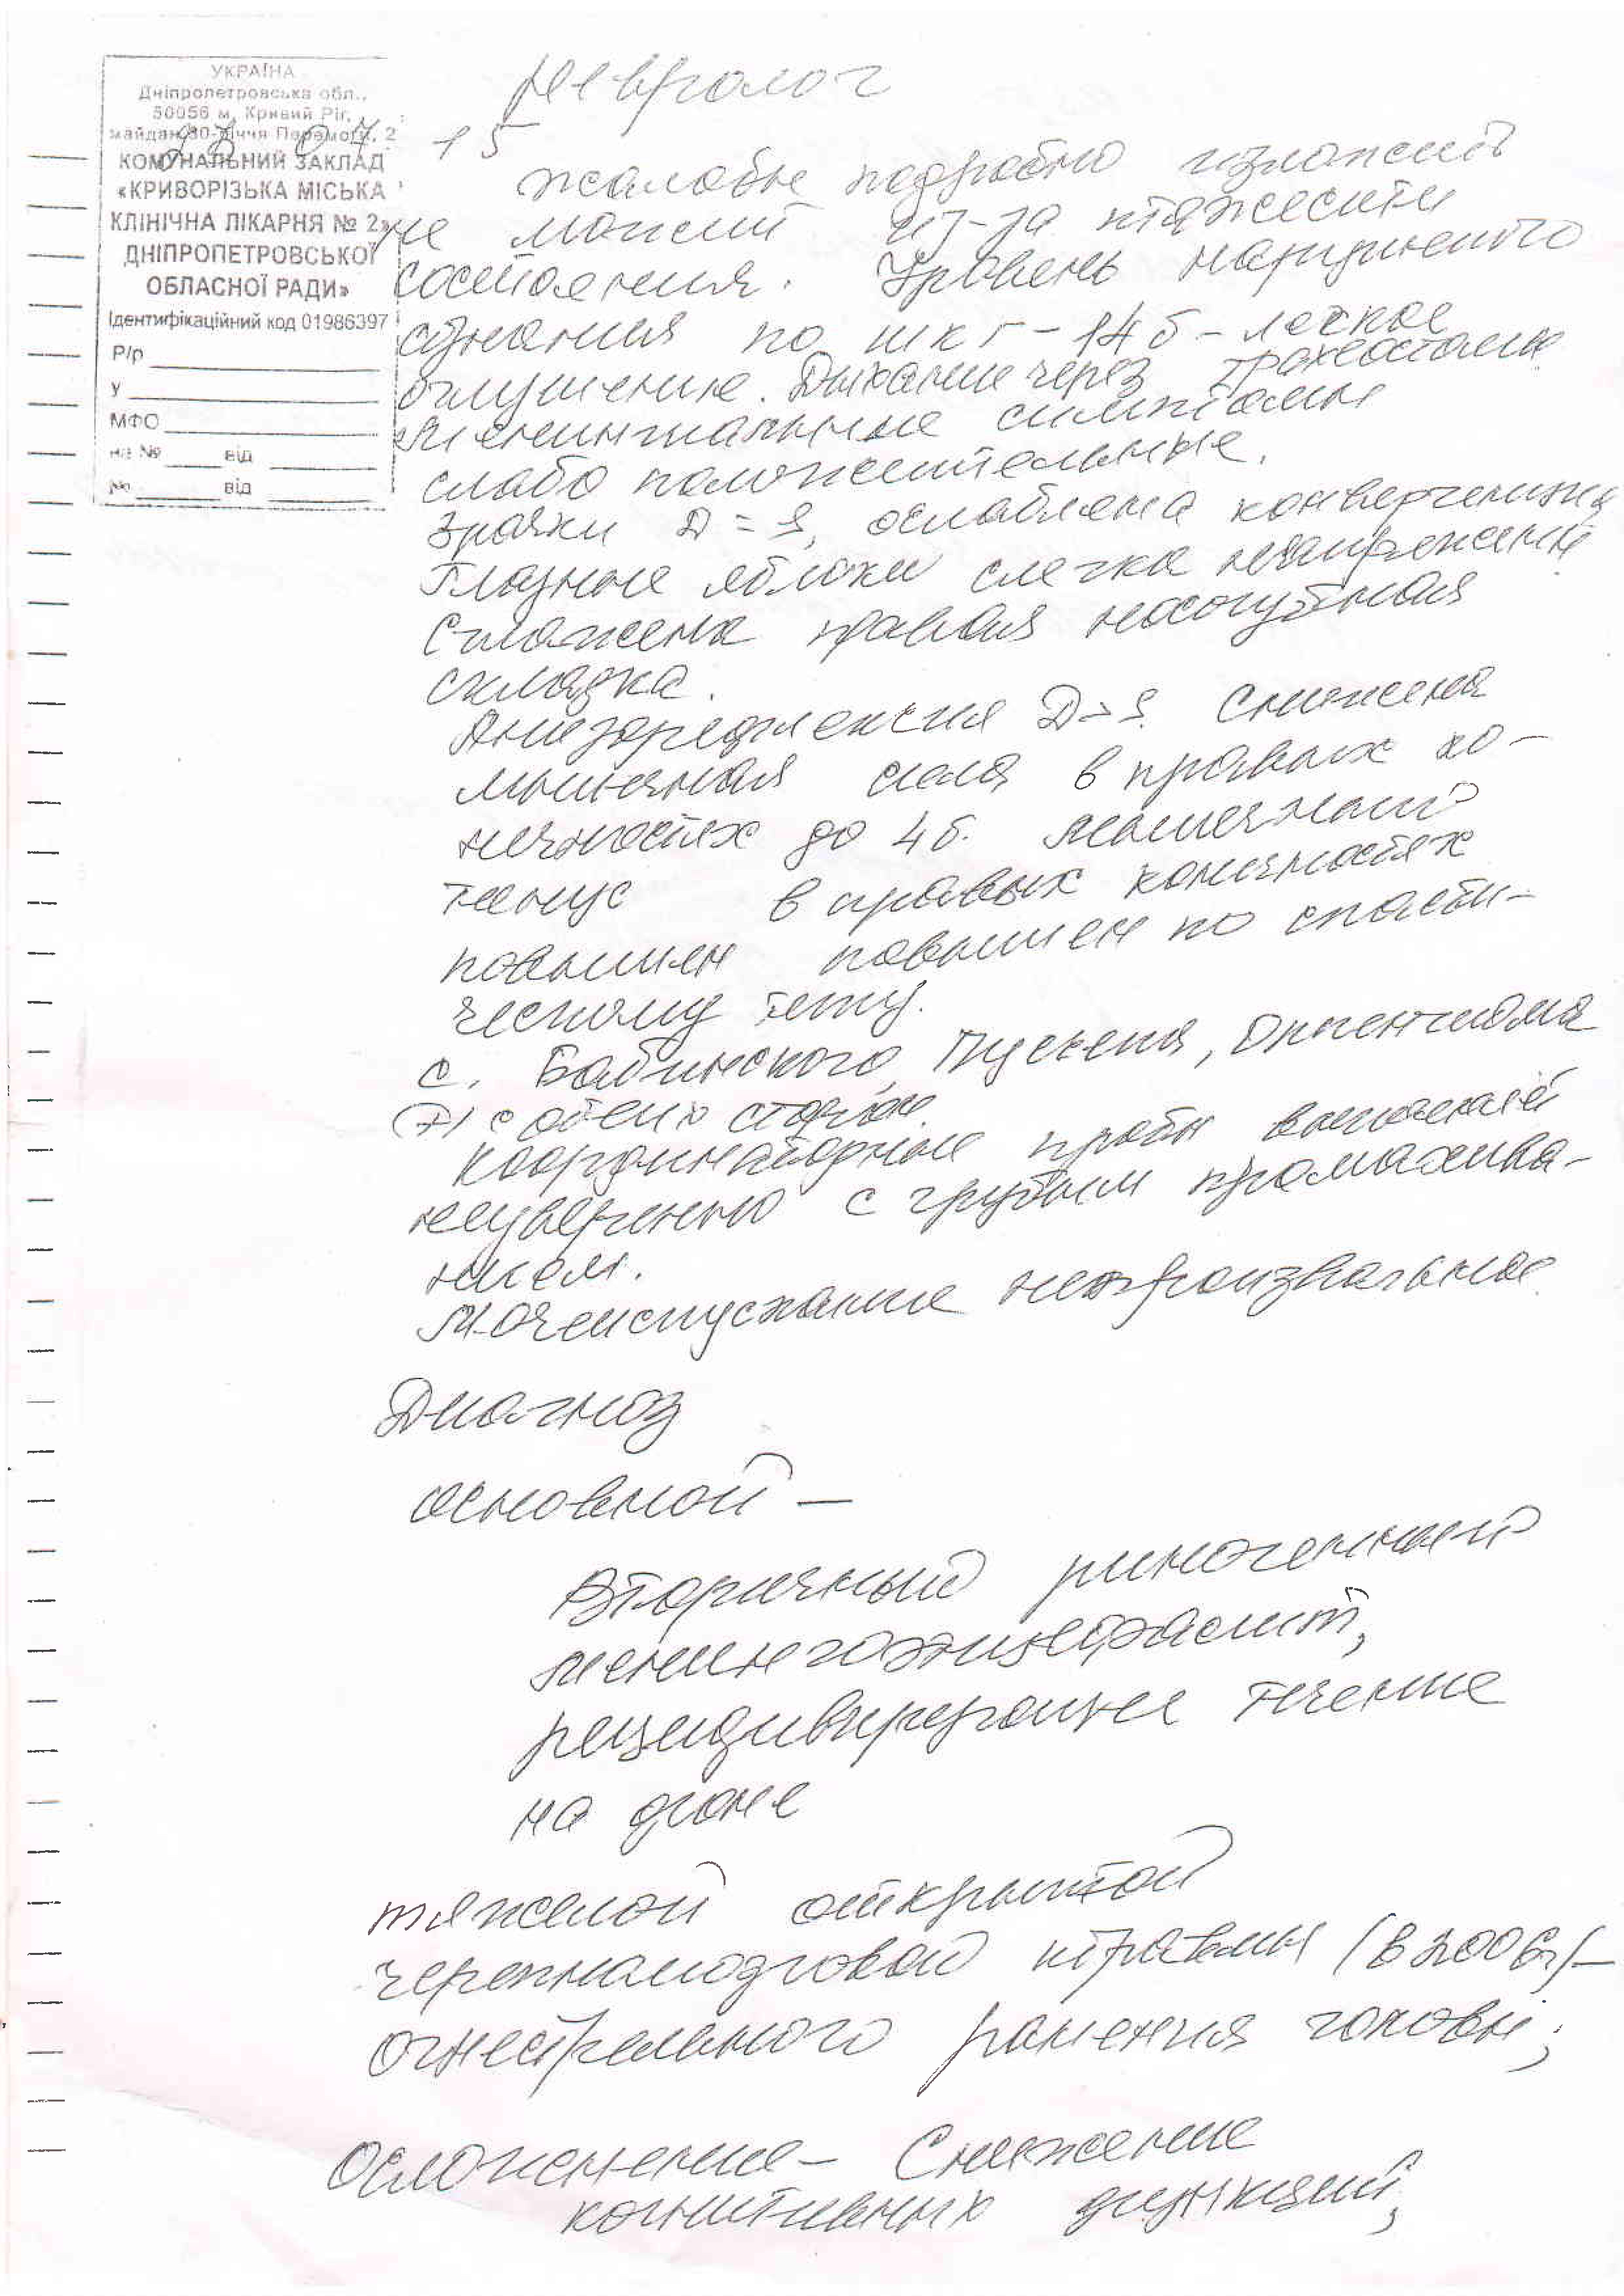 УКРАЇНА
Дніпропетровська обл.,
50056 м. Кривий Ріг,
майдан 30-річчя Перемоги, 2
КОМУНАЛЬНИЙ ЗАКЛАД
«КРИВОРІЗЬКА МІСЬКА
КЛІНІЧНА ЛІКАРНЯ № 2»
ДНІПРОПЕТРОВСЬКОЇ
ОБЛАСНОЇ РАДИ»
Ідентифікаційний код 01986397
Р/р
у
МФО
на № від
№ від
Невролог
07 15
Жалобы подробно изложить
не может из-за тяжести
состояния. Уровень нарушеного
сознания по шкг - 14б - легкое
оглушение. Дыхание через трахеостому
Менингиальные симптомы
слабо положительные.
Зрачки D = S, ослаблена конвергенция
Глазные яблоки слегка
Сглажена правая носогубная
складка.
Анизорефлексия D>S. Снижена
мышечная сила в правых ко-
нечностях до 4б. Мышечный
тонус в правых конечностях
повышен повышен по спасти-
ческому типу.
с. Бабинского, Пуссепа, Оппенгейма
(+) с обеих сторон.
Координаторные пробы выполняет
неуверенно с грубым промахива-
нием.
Мочеиспускание непроизвольное.
Диагноз
основной –
Вторичный риногенный
менингоэнцефалит,
рецидивирующее течение
на фоне
тяжелой открытой
черепномозговой травмы (в 2006г) –
огнестрельного ранения головы;
Осложнение – Снижение
когнитивных функций,